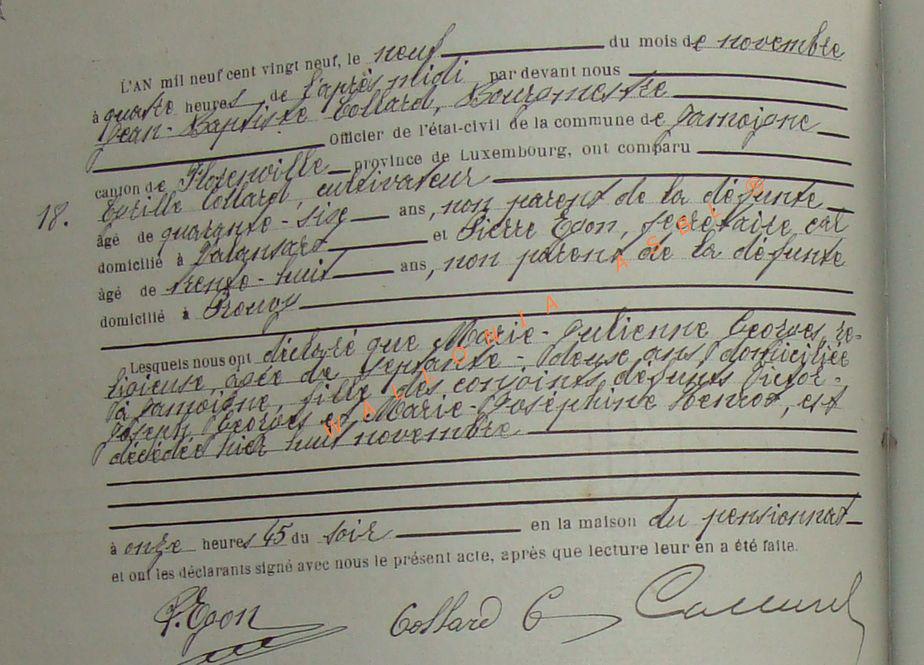 L'AN mil neuf cent vingt neuf, le neuf du mois de novembre
à quatre heures de l'après-midi par devant nous
Jean-Baptiste Collard, Bourgmestre
officier de l'état-civil de la commune de Jamoigne
canton de Florenville province de Luxembourg, ont comparu
18. Cyrille Collard, cultivateur
âgé de quarante-six ans, non parent de la défunte
domicilié à Valansart et Pierre Egon, secrétaire cal
âgé de trente-huit ans, non parent de la défunte
domicilié à Prouvy
Lesquels nous ont déclaré que Marie-Julienne Georges, re-
ligieuse, agée de septante-deux ans, domiciliée
à Jamoigne, fille des conjoints défunts Victor-
Joseph Georges et Marie-Joséphine Henrot, est
décédée hier huit novembre
à onze heures 45 du soir en la maison du pensionnat
et ont les déclarants signé avec nous le présent acte, après que lecture leur en a été faite.
P. Egon Collard C Collard
WALLONIA ASBL